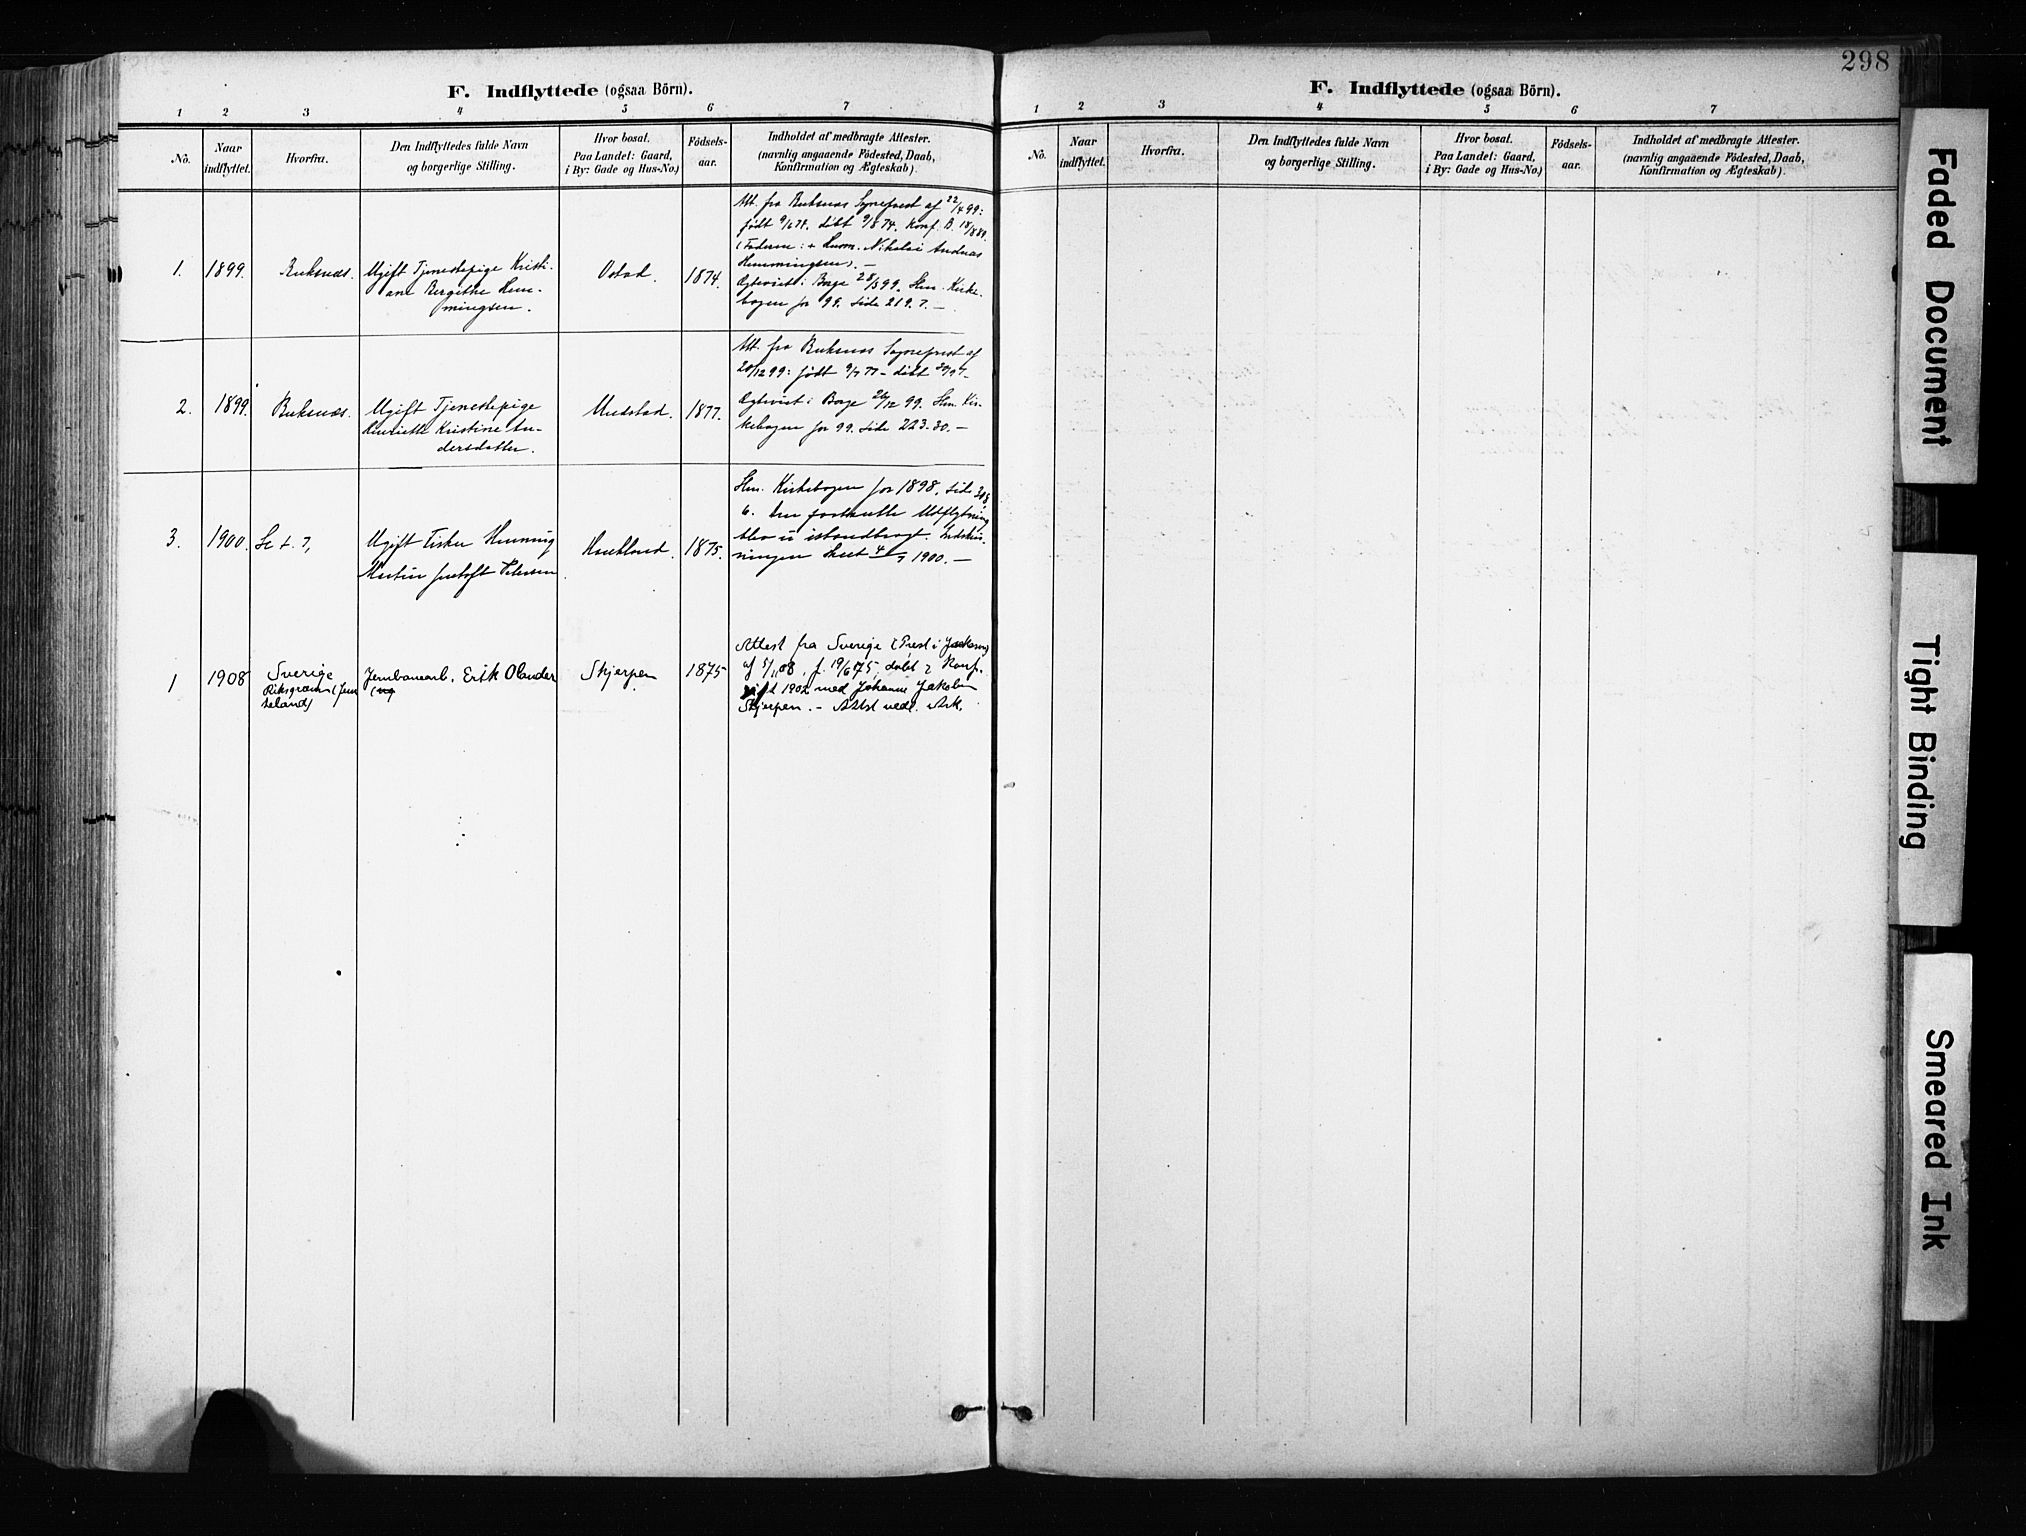 298
F. Indflyttede (ogsaa Börn).
1 2 3 4 5 6 7
No.
Naar indflyttet.
Hvorfra.
Den Indflyttedes fulde Navn
og borgerlige Stilling.
Hvor bosat.
Paa Landet: Gaard,
i By: Gade og Hus-No.)
Födsels-
aar.
Indholdet af medbragte Attester.
(navnlig angaaende Födested, Daab,
Konfirmation og Ægteskab).
1. 1899. Buksnæs.
Ugift Tjenestepige Kristi-
ane Bergithe Hem-
mingsen.
1874.
Att. fra Buksnæs Sogneprest af 22/4 99:
født døbt Konf. B.
(Faderen: + Husm. Nikolai Andreas
Hemmingsen). —
Ægteviet i Borge 28/5 99. Hm. Kirke-
bogen for 99. Side 219. 7. —
2. 1899. Buksnæs.
Ugift Tjenestepige
Henriette Kristine An-
dersdatter.
Mindstad. 1877.
Att. fra Buksnæs Sogneprest af
20/12 99: født 9/7 77 — døbt
Ægteviet i Borge 26/12 99. Hm. Kir-
kebogen for 99. Side 223. 30. —
3. 1900. Se L. 7,
Ugift Fisker Henning
Martin Justoft Petersen
Haukland. 1875.
Hm. Kirkebogen for 1898. Side 308
6. Den paatænkte Udflytning
blev ei istandbragt. Indskriv-
ningen skeet 4/7 1900. —
1 1908
Sverige
Riksgrænsen (Jem
teland)
Jernbanearb. Erik Olander
Skjerpen 1875
Attest fra Sverige (Prest i
af 5/11 08, f. 19/6 75, døbt & Konf.
gift 1902 med Johanne Jakobs
Skjerpen. — Attst vedl. Ark.
F. Indflyttede (ogsaa Börn).
1 2 3 4 5 6 7
No.
Naar
indflyttet.
Hvorfra.
Den Indflyttedes fulde Navn
og borgerlige Stilling.
Hvor bosat.
Paa Landet: Gaard,
i By: Gade og Hus-No.)
Födsels-
aar.
Indholdet af medbragte Attester.
(navnlig angaaende Födested, Daab,
Konfirmation og Ægteskab).
Faded Document
Tight Binding
Smeared Ink